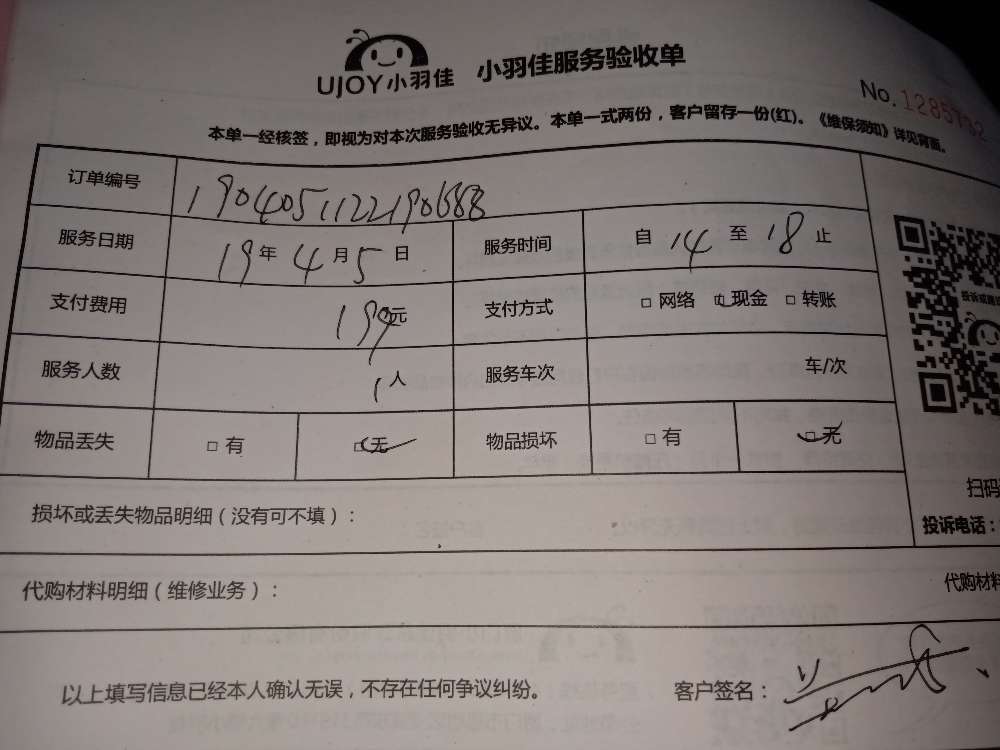 UJOY小羽佳 小羽佳服务验收单
No.1285792
本单一经核签，即视为对本次服务验收无异议。本单一式两份，客户留存一份(红)。《维保须知》详见背面。
订单编号 1904051122190688
服务日期 19年4月5日 服务时间 自14至18止
支付费用 199元 支付方式 □网络 □现金 □转账
服务人数 1人 服务车次 车/次
物品丢失 □有 □无 物品损坏 □有 □无
投诉或建议
扫码
损坏或丢失物品明细（没有可不填）：
投诉电话：
代购材料明细（维修业务）：
代购材料
以上填写信息已经本人确认无误，不存在任何争议纠纷。 客户签名：